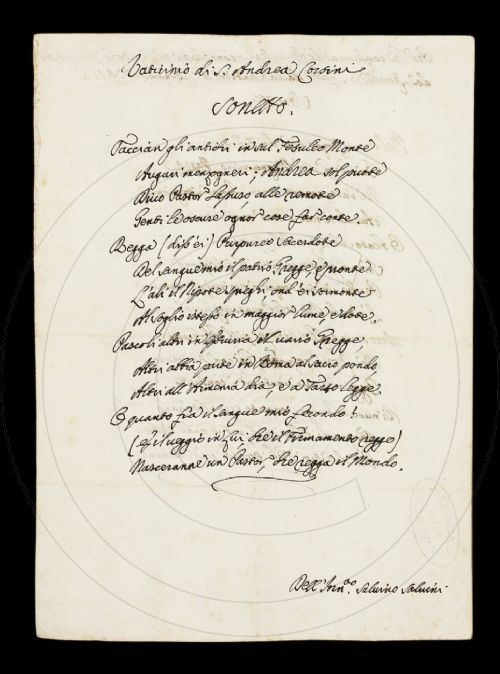 Vaticinio di S. Andrea Corsini
Sonetto.
Taccian gli antichi in sul Fesuleo Monte
Auguri menzogneri; Andrea sol puote
Divo Pastor Lassuso alle remote
Genti le oscure ognor cose far conte.
Regga (diss'ei) Purpureo Sacerdote
Del sangue mio il patrio Gregge, e pronte
L'ali il Nipote spieghi, ond'ei sormonte
Al soglio istesso in maggior lume, e dote.
Pascoli altri in il vario Gregge,
Altri abbia parte in Roma al sacro pondo
Altri all'Armenia dia, e a Tarso legge.
O quanto fia il sangue mio fecondo!
(e il veggio in lui, che il Firmamento regge)
Nasceranne un Pastor, che regga il Mondo.
Dell' Salvino Salvini